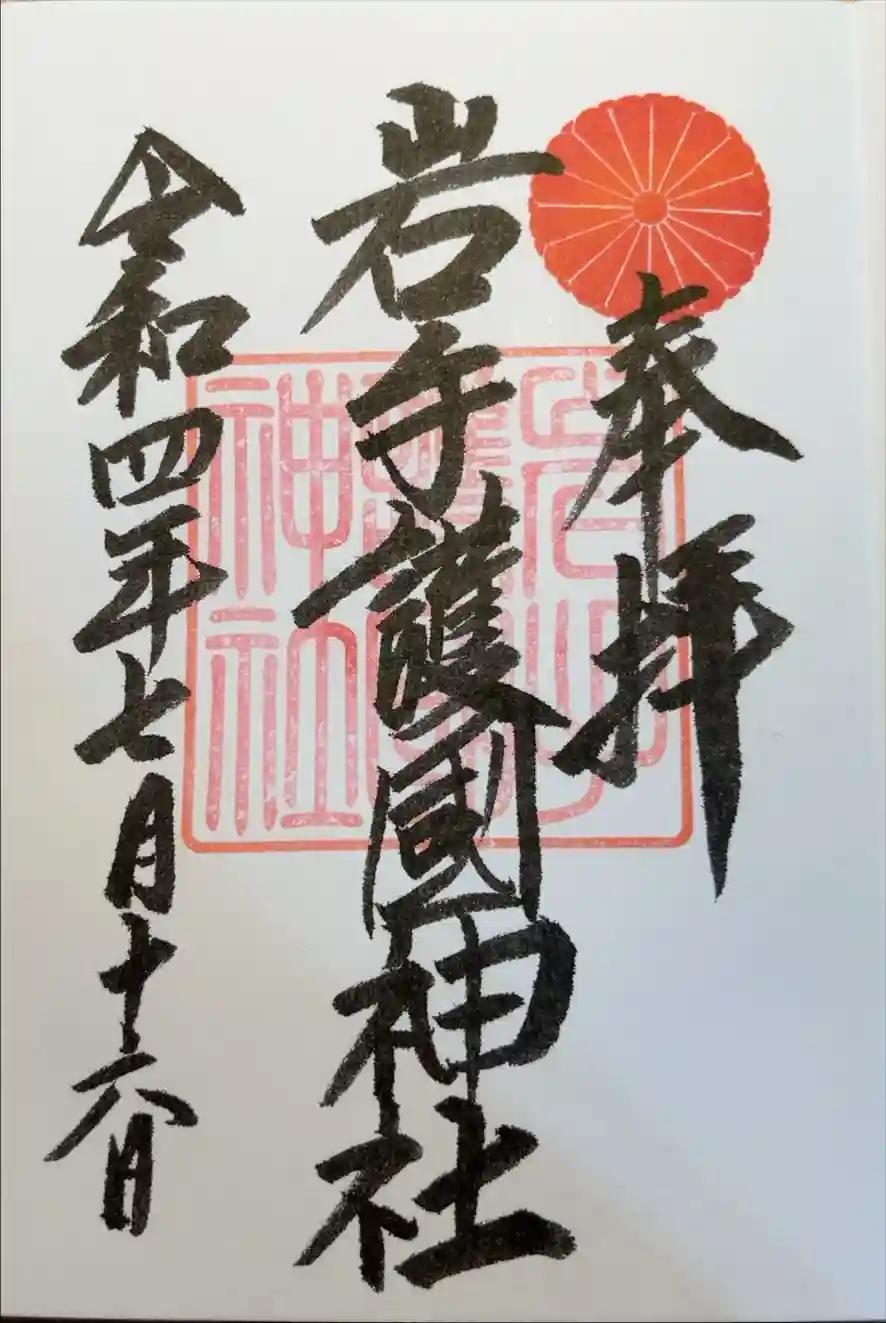 奉拝
岩手護國神社
令和四年七月十六日
岩手
護國
神社